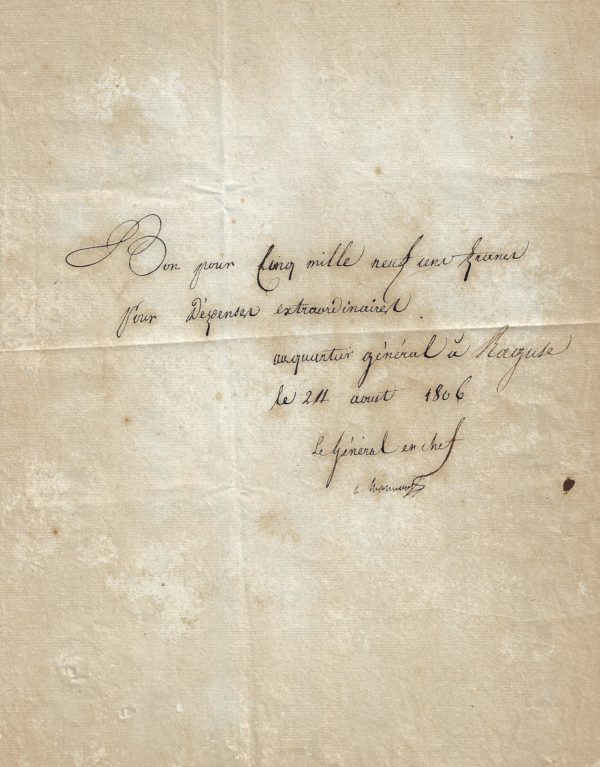 Bon pour Cinq mille neuf cens francs
pour Dépenses extraordinaires.
au quartier général à Raguse
le 24 aoust 1806
Le Général en chef